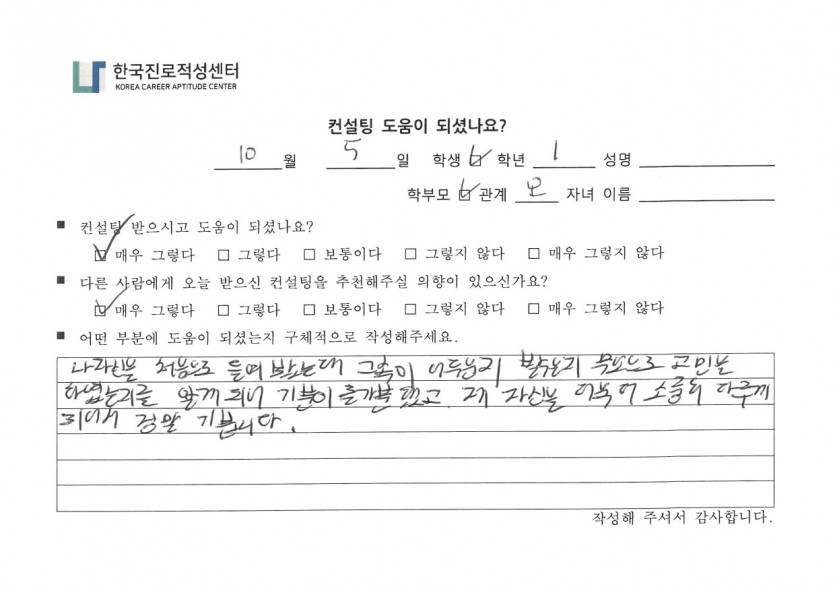 한국진로적성센터
KOREA CAREER APTITUDE CENTER
컨설팅 도움이 되셨나요?
10 월 5 일 학생 ☑ 학년 1 성명
학부모 ☑ 관계 모 자녀 이름
■ 컨설팅 받으시고 도움이 되셨나요?
☑ 매우 그렇다 □ 그렇다 □ 보통이다 □ 그렇지 않다 □ 매우 그렇지 않다
■ 다른 사람에게 오늘 받으신 컨설팅을 추천해주실 의향이 있으신가요?
☑ 매우 그렇다 □ 그렇다 □ 보통이다 □ 그렇지 않다 □ 매우 그렇지 않다
■ 어떤 부분에 도움이 되셨는지 구체적으로 작성해주세요.
나 자신을 처음으로 들여 보았는데 그속이 어두운지 밝은지 무엇으로 고민을
하였는지를 알게 되어 기분이 홀가분 했고. 제 자신을 더욱 더 소중히 다루게
되어서 정말 기쁩니다.
작성해 주셔서 감사합니다.